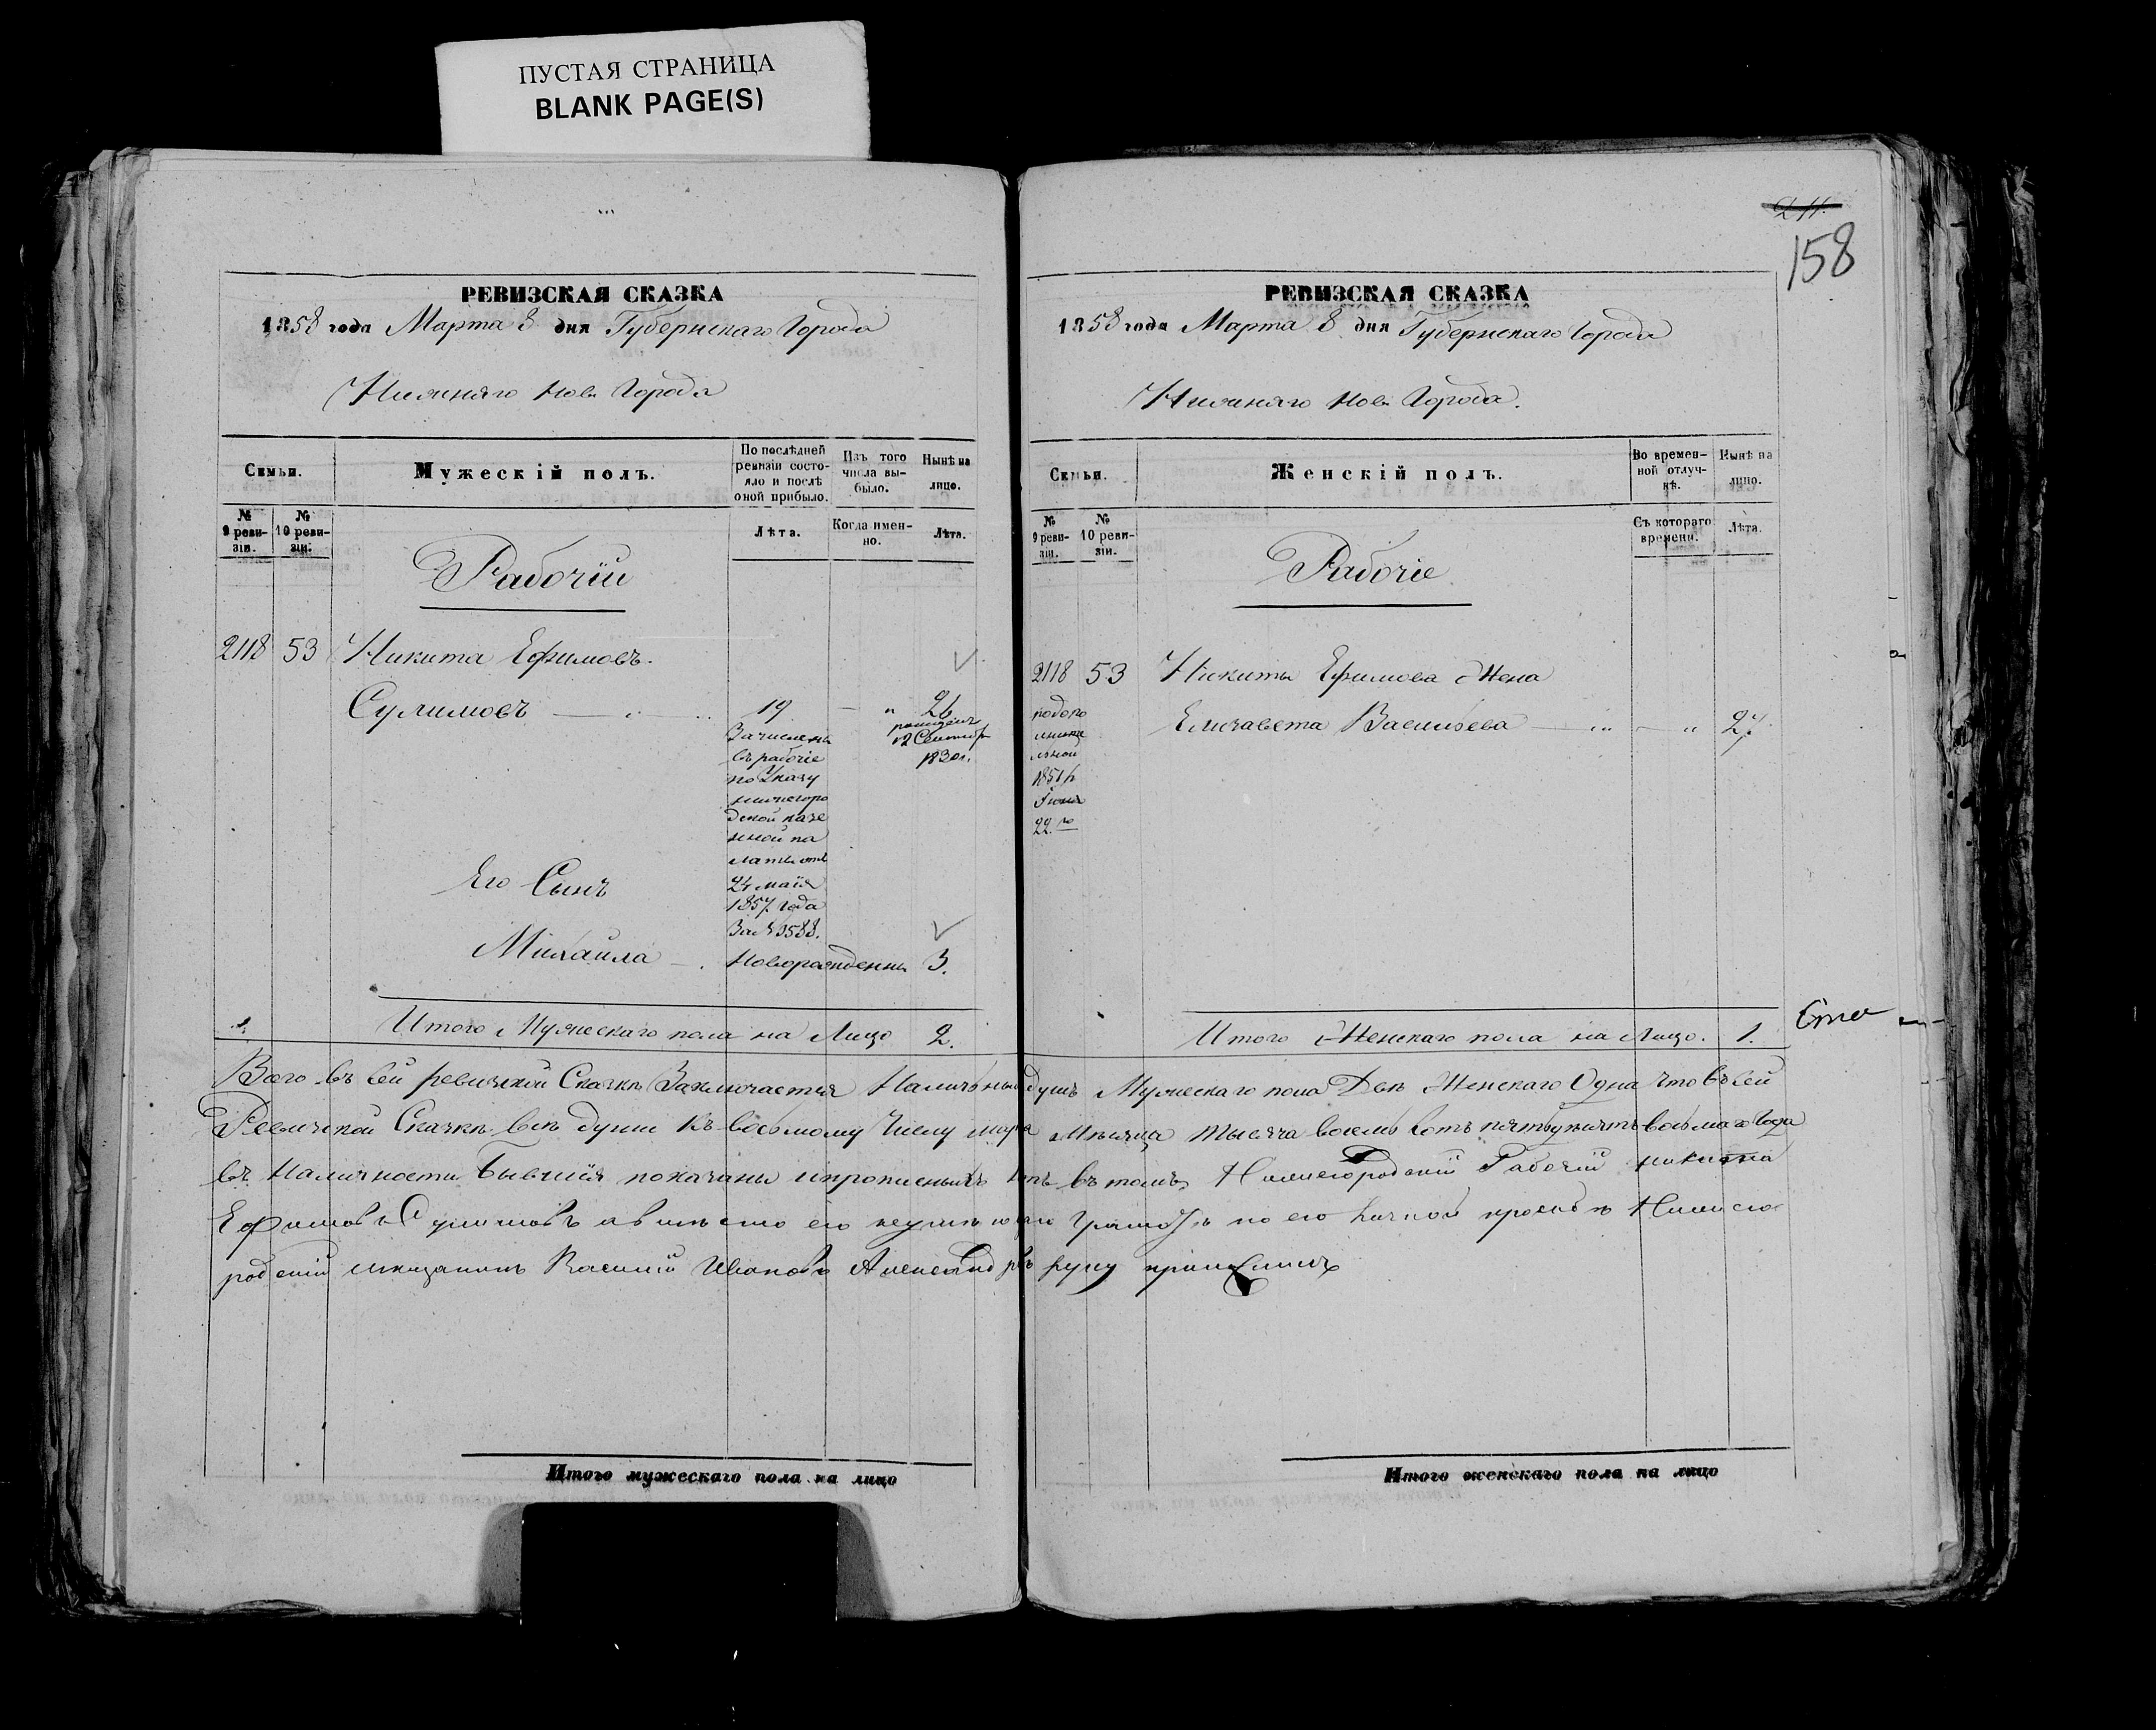 ПУСТАЯ СТРАНИЦА
BLANK PAGE(S)
РЕВИЗСКАЯ СКАЗКА
1858 года Марта 8 дня Губернскаго Города
Нижняго Нов Города
Семьи.
Мужескій полъ.
По послѣдней ревизіи состояло и послѣ оной прибыло.
Изъ того числа выбыло.
Нынѣ на лицо.
№ 9 ревизіи.
№ 10 ревизіи.
Лѣта.
Когда именно.
Лѣта.
Рабочій
2118 53 Никита Ефимовъ.
Сулимовъ 19 26
Зачисленъ
въ рабочіе
по Указу
нижегоро
дской казе
нной па
латы отъ
24 маія
1857 года
За № 3588.
рожденъ
12 Сентябр
1830 г.
Его Сынъ
Михаила Новорожденны 3.
Итого Мужескаго пола на Лицо 2.
24.
158
РЕВИЗСКАЯ СКАЗКА
1858 года Марта 8 дня Губернскаго Города
Нижняго Нов Города.
Семьи.
Женскій полъ.
Во временной отлучкѣ.
Нынѣ на лицо.
№ 9 ревизіи.
№ 10 ревизіи.
Съ котораго времени.
Лѣта.
Рабочіе
2118 53 Никиты Ефимова Жена
Елизавета Васильева 27.
1851 г
Іюня
22 го
Итого Женскаго пола на Лицо. 1.
Всего въ сей ревизкой Сказкѣ Заключается Наличных душъ Мужескаго пола Двѣ Женскаго Одна что въ сей
Ревизкой Сказкѣ всѣ души къ восьмому Числу марта Мѣсяца тысяча восемь сотъ пятьдесятъ восьмаго Года
въ Наличности бывшія показаны и прописныхъ нѣтъ въ томъ Нижегородскій Рабочій никита
Ефимовъ Сулимовъ а вмѣсто его неумѣющаго Грамотѣ по его личной просьбѣ Нижего
родскій мещанинъ Василий Ивановъ Александровъ руку приложилъ
Итого мужескаго пола на лицо
Итого женскаго пола на лицо